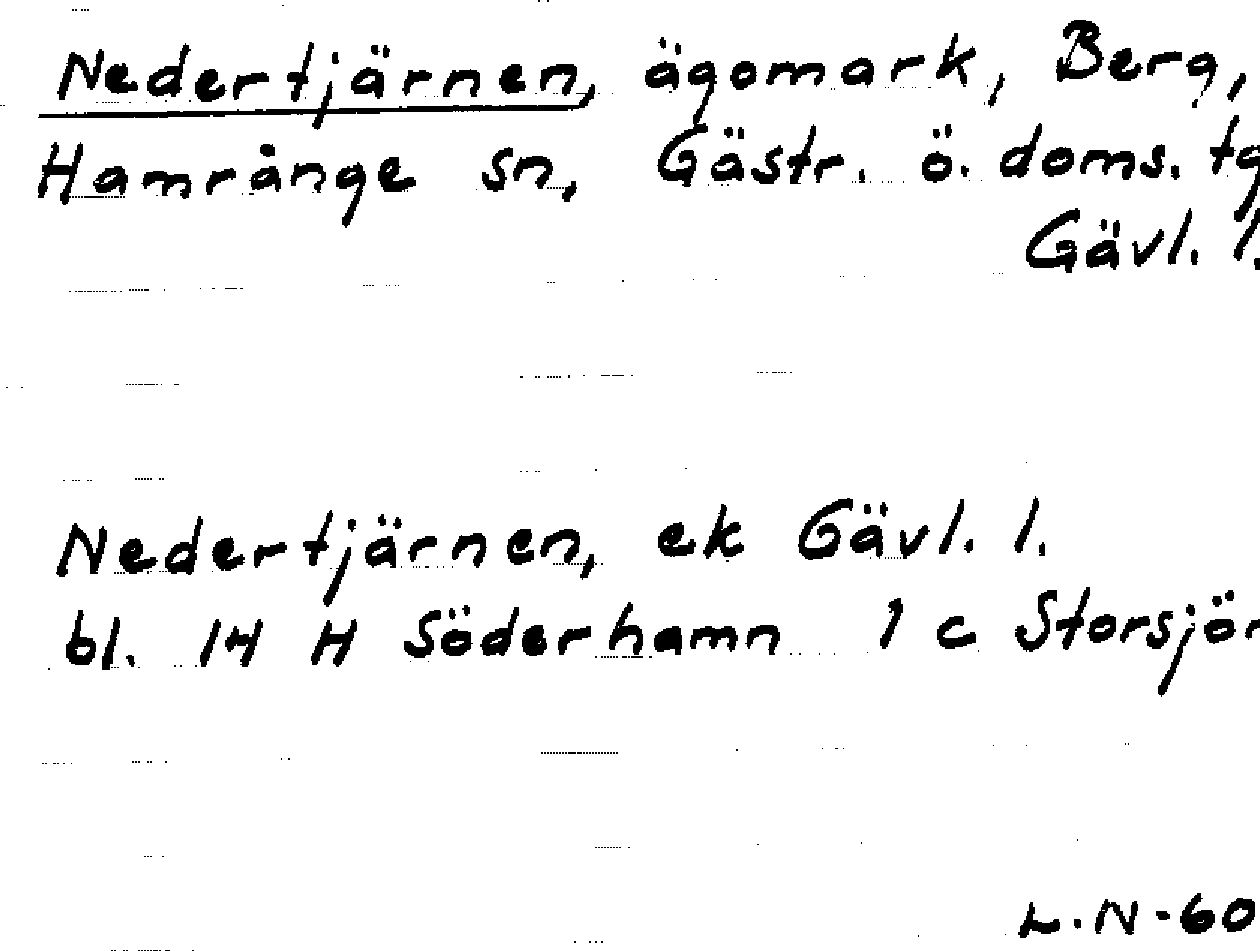 Nedertjärnen, ägomark, Berg,
Hamrånge sn, Gästr. ö. doms. tg
Gävl. l.
Nedertjärnen, ek Gävl. l.
bl. 14 H Söderhamn 1 c Storsjör
L.N-60